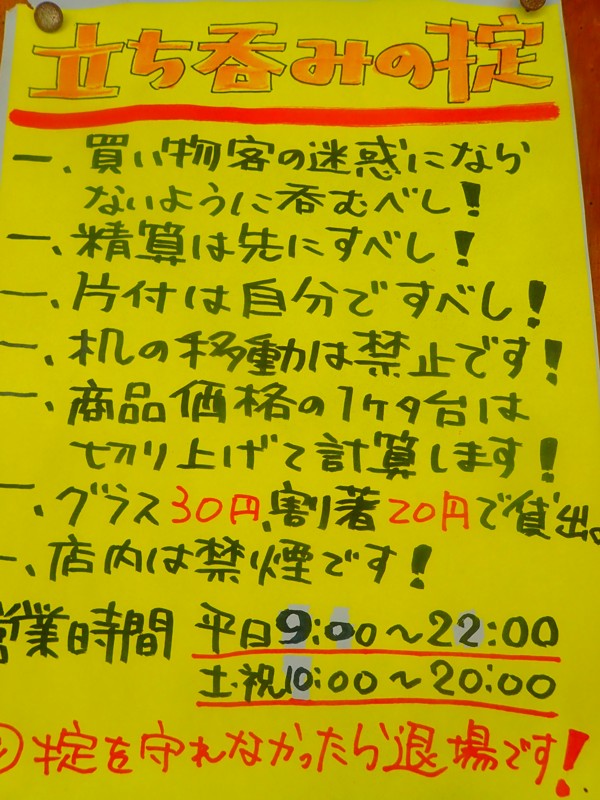 立ち呑みの掟
一、買い物客の迷惑になら
ないように呑むべし!
一、精算は先にすべし!
一、片付は自分ですべし!
一、机の移動は禁止です!
一、商品価格の1ケタ台は
切り上げて計算します!
一、グラス30円、割箸20円で貸出。
一、店内は禁煙です!
営業時間 平日9:00~22:00
土・祝10:00~20:00
掟を守れなかったら退場です!